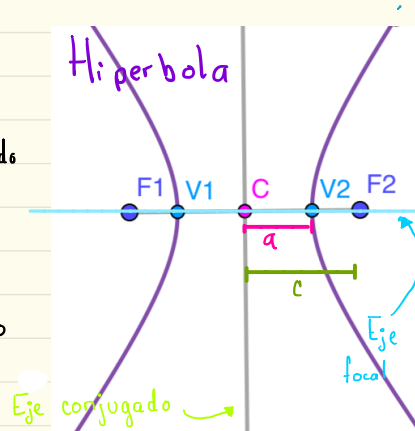 Hiperbola
F1 V1 C V2 F2
a
c
Eje
focal
Eje conjugado